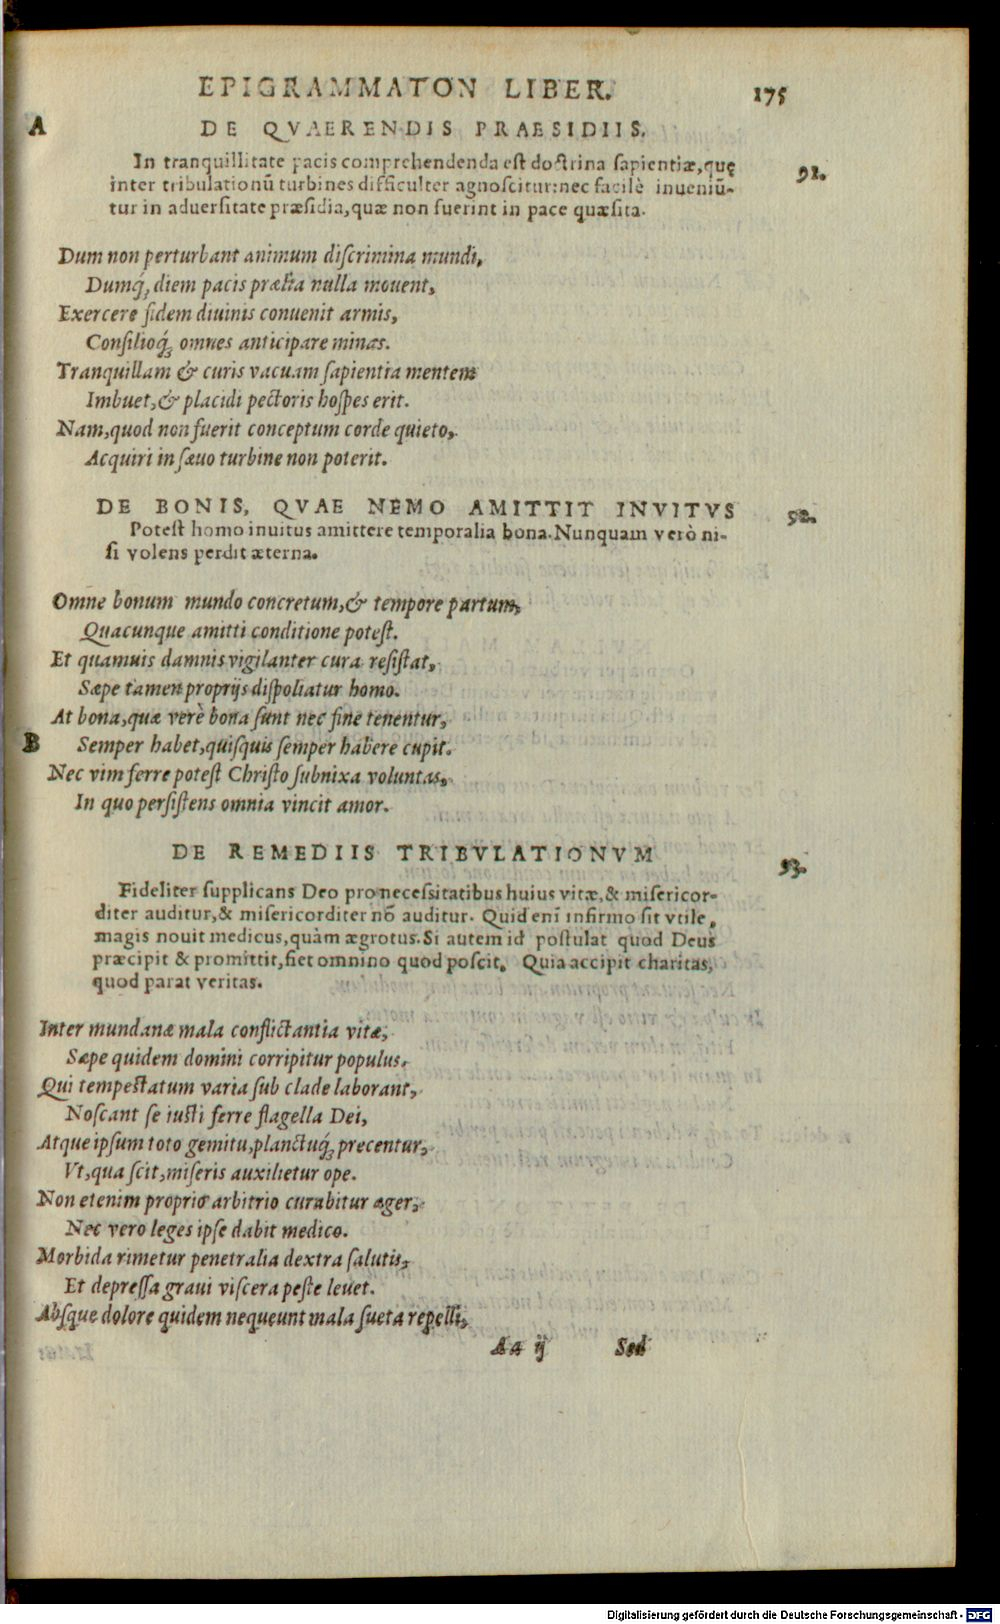 EPIGRAMMATON LIBER. 175
A
DE QVAERENDIS PRAESIDIIS.
In tranquillitate pacis comprehendenda est doctrina sapientiæ, quę 91.
inter tribulationũ turbines difficulter agnoscitur: nec facilè inueniũ-
tur in aduersitate præsidia, quæ non fuerint in pace quæsita.
Dum non perturbant animum discrimina mundi,
Dumq́; diem pacis prælia nulla mouent,
Exercere fidem diuinis conuenit armis,
Consilioq́; omnes anticipare minas.
Tranquillam & curis vacuam sapientia mentem
Imbuet, & placidi pectoris hospes erit.
Nam, quod non fuerit conceptum corde quieto,
Acquiri in sæuo turbine non poterit.
DE BONIS, QVAE NEMO AMITTIT INVITVS 92.
Potest homo inuitus amittere temporalia bona. Nunquam verò ni-
si volens perdit æterna.
Omne bonum mundo concretum, & tempore partum,
Quacunque amitti conditione potest.
Et quamuis damnis vigilanter cura resistat,
Sæpe tamen proprijs dispoliatur homo.
At bona, quæ verè bona sunt nec fine tenentur,
B Semper habet, quisquis semper habere cupit.
Nec vim ferre potest Christo subnixa voluntas,
In quo persistens omnia vincit amor.
DE REMEDIIS TRIBVLATIONVM 93.
Fideliter supplicans Deo pro necessitatibus huius vitæ, & misericor-
diter auditur, & misericorditer nō auditur. Quid enī infirmo sit vtile,
magis nouit medicus, quàm ægrotus. Si autem id postulat quod Deus
præcipit & promittit, fiet omnino quod poscit. Quia accipit charitas,
quod parat veritas.
Inter mundanæ mala conflictantia vitæ,
Sæpe quidem domini corripitur populus.
Qui tempestatum varia sub clade laborant,
Noscant se iusti ferre flagella Dei,
Atque ipsum toto gemitu, planctuq́; precentur,
Vt, qua scit, miseris auxilietur ope.
Non etenim proprio arbitrio curabitur æger,
Nec vero leges ipse dabit medico.
Morbida rimetur penetralia dextra salutis,
Et depressa graui viscera peste leuet.
Absque dolore quidem nequeunt mala sueta repelli,
Aa ij Sed
Digitalisierung gefördert durch die Deutsche Forschungsgemeinschaft - DFG